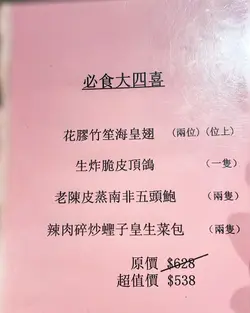 必食大四喜
花膠竹笙海皇翅 (兩位)(位上)
生炸脆皮頂鴿 (一隻)
老陳皮蒸南非五頭鮑 (兩隻)
辣肉碎炒蟶子皇生菜包 (兩隻)
原價 $628
超值價 $538